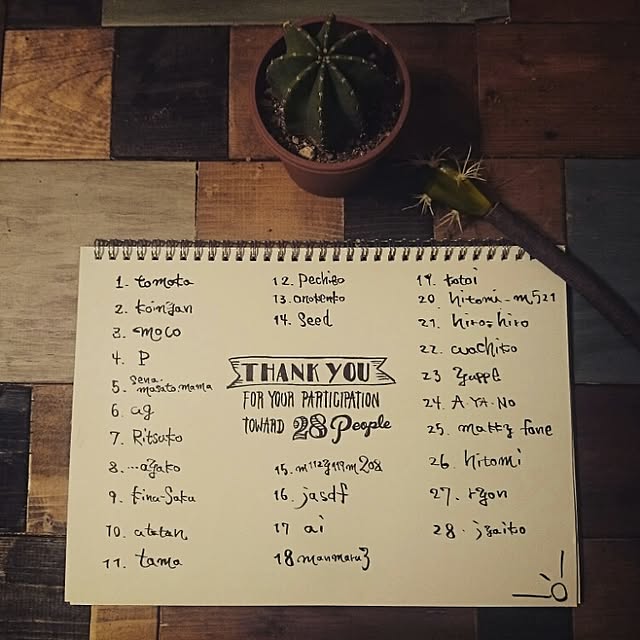 1. tomoka
2. koinjan
3. moco
4. P
5. sena. masato.mama
6. ag
7. Ritsuko
8. ...ayako
9. kina-Saku
10. atetan
11. tama
12. Pechico
13. omokenko
14. Seed
THANK YOU
FOR YOUR PARTICIPATION
TOWARD 28 People
16. jasdf
17 ai
18 manmaru3
19. totoi
20. hitomi-m521
21. hiro-hiro
22. cuochico
24. A.YA.NO
26. hitomi
27. ryon
28. jyaiko